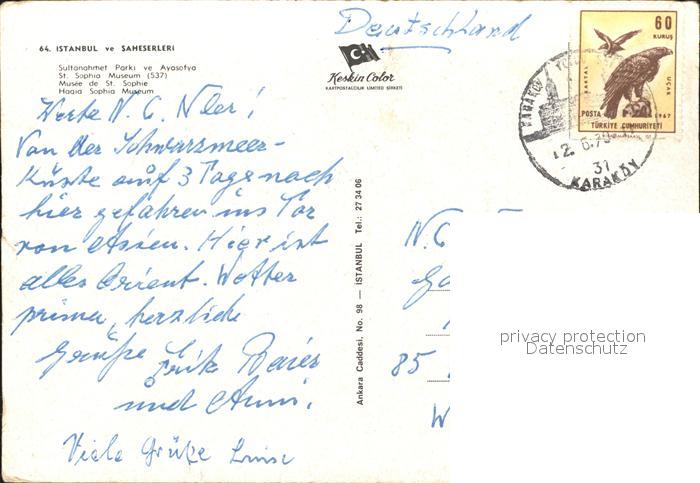 Deutschland
64. ISTANBUL ve ŞAHESERLERİ
Sultanahmet Parkı ve Ayasofya
St. Sophia Museum (537)
Musée de St. Sophie
Hagia Sophia Museum
Keskin Color
KARTPOSTALCILIK LİMİTED ŞİRKETİ
60
KURUŞ
KARTAL
UÇAK
POSTA
1967
TÜRKİYE CUMHURİYETİ
KARAKÖY
12.6.75
31
KARAKÖY
Werte N. C. Nler!
Von der Schwarzmeer-
Küste auf 3 Tage nach
hier gefahren ins Tor
von Asien. Hier ist
alles Orient. Wetter
prima, herzliche
Grüße Erik Baier
und Anni.
Viele Grüße
Ankara Caddesi, No. 98 — İSTANBUL Tel.: 27 34 06
N. C
85
W
privacy protection
Datenschutz